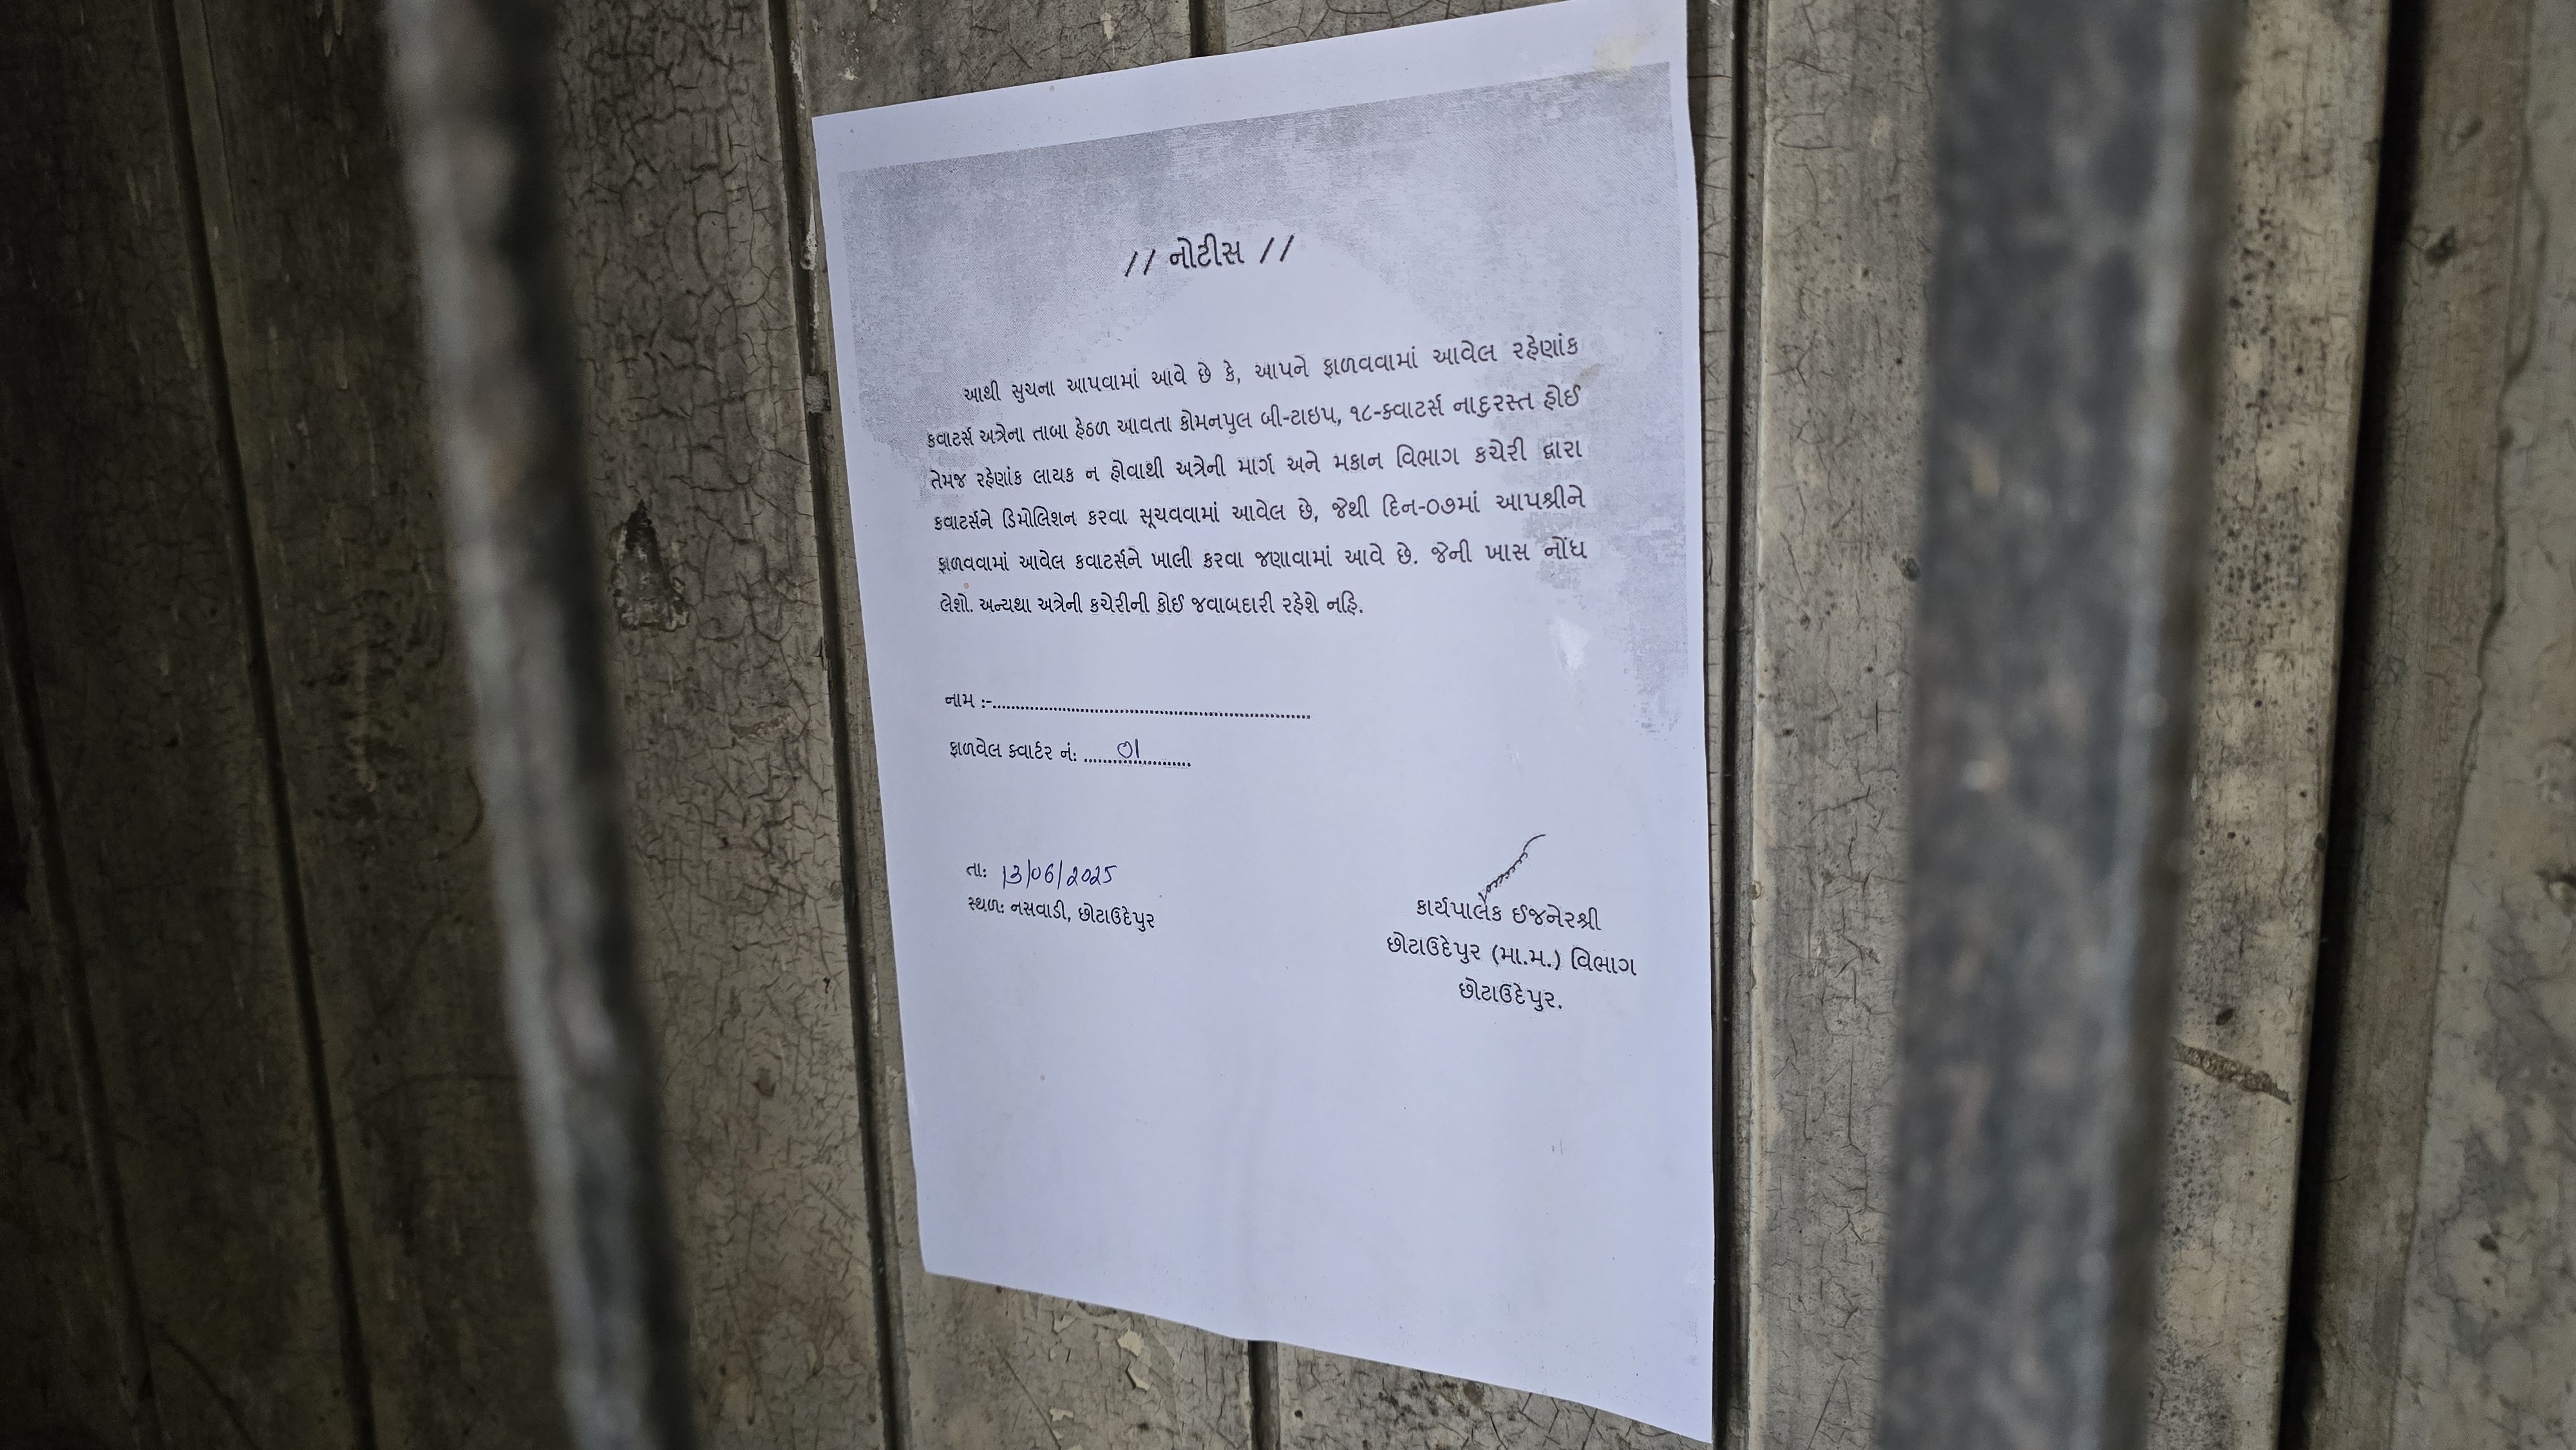 // નોટીસ //
આથી સુચના આપવામાં આવે છે કે, આપને ફાળવવામાં આવેલ રહેણાંક
કવાટર્સ અત્રેના તાબા હેઠળ આવતા કોમનપુલ બી-ટાઇપ, ૧૮-ક્વાટર્સ નાદુરસ્ત હોઈ
તેમજ રહેણાંક લાયક ન હોવાથી અત્રેની માર્ગ અને મકાન વિભાગ કચેરી દ્વારા
કવાટર્સને ડિમોલિશન કરવા સૂચવવામાં આવેલ છે, જેથી દિન-૦૭માં આપશ્રીને
ફાળવવામાં આવેલ કવાટર્સને ખાલી કરવા જણાવામાં આવે છે. જેની ખાસ નોંધ
લેશો. અન્યથા અત્રેની કચેરીની કોઈ જવાબદારી રહેશે નહિ.
નામ :-......................................................
ફાળવેલ ક્વાર્ટર નં: ......01..........
તા: 13/06/2025
સ્થળ: નસવાડી, છોટાઉદેપુર
કાર્યપાલક ઈજનેરશ્રી
છોટાઉદેપુર (મા.મ.) વિભાગ
છોટાઉદેપુર.